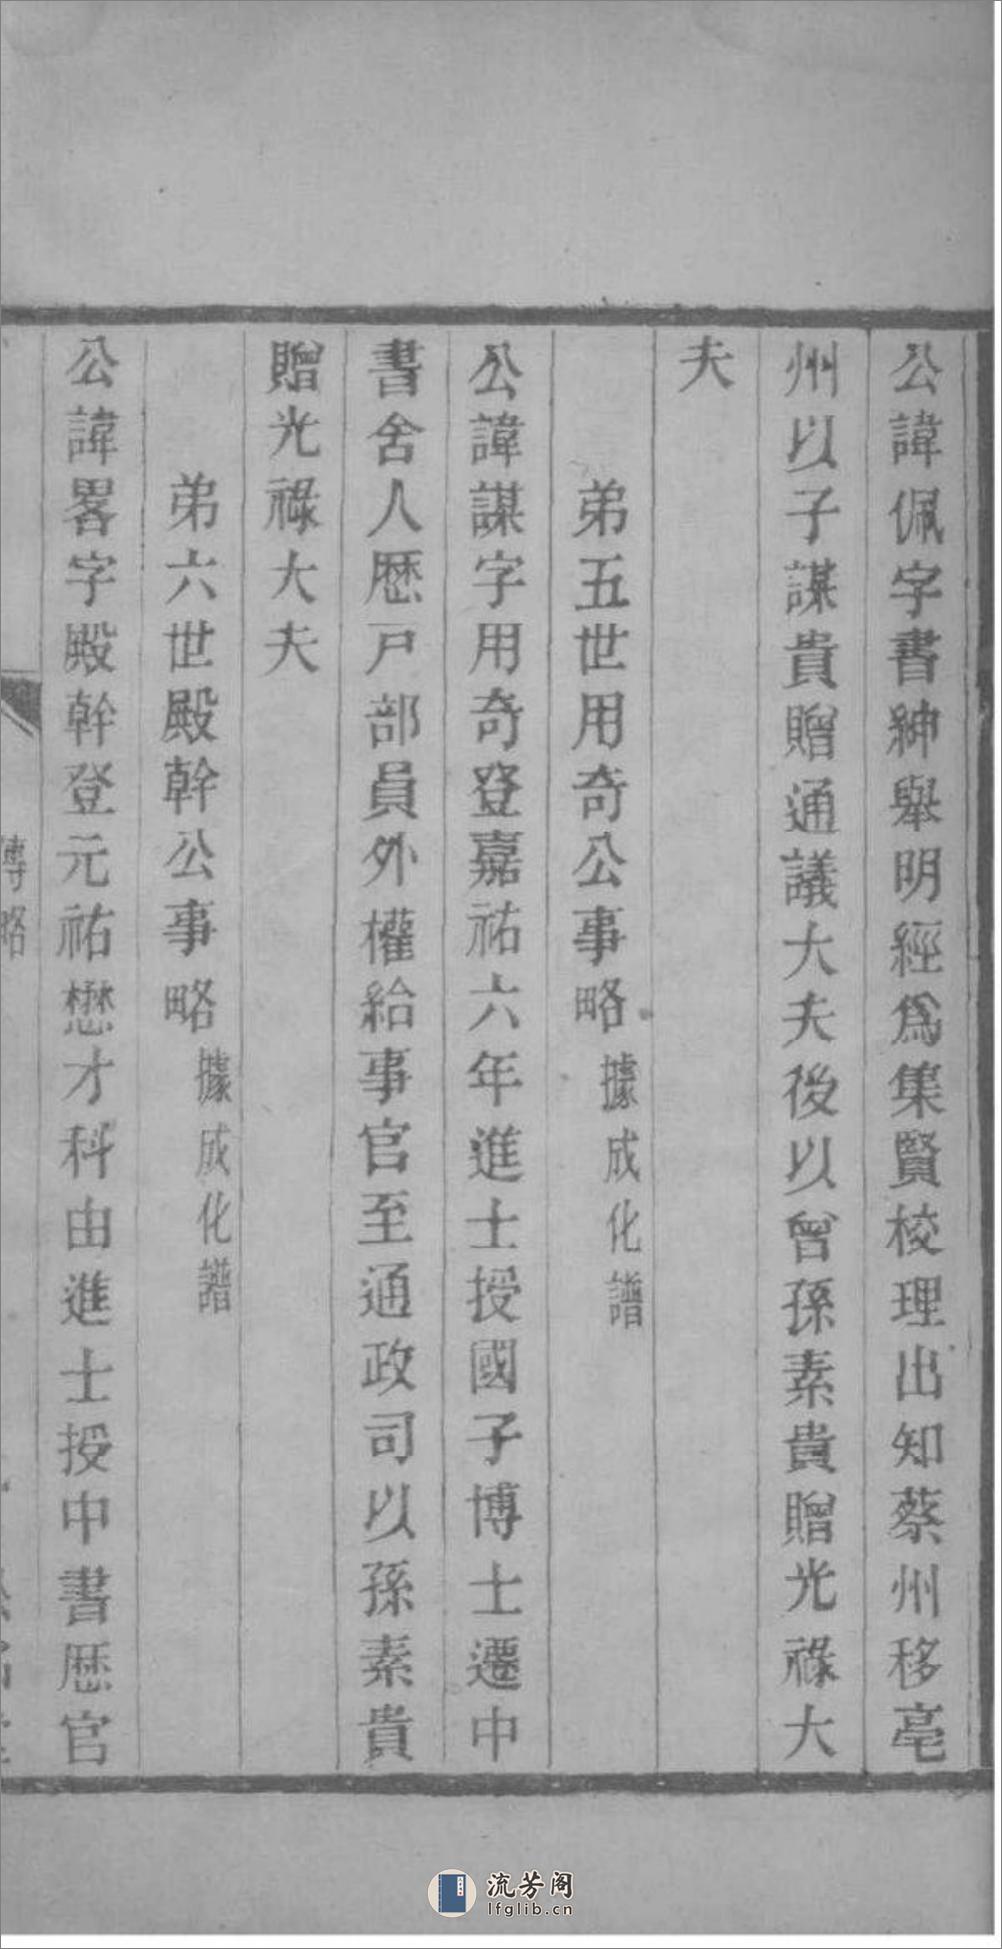 公諱佩字書紳舉明經爲集賢校理出知蔡州移亳
州以子謀貴贈通議大夫後以曾孫素貴贈光祿大
夫
弟五世用奇公事略據成化譜
公諱謀字用奇登嘉祐六年進士授國子博士遷中
書舍人歷戸部員外權給事官至通政司以孫素貴
贈光祿大夫
弟六世殿幹公事略據成化譜
公諱畧字殿幹登元祐懋才科由進士授中書歷官
傳略
流芳阁
lfglib.cn